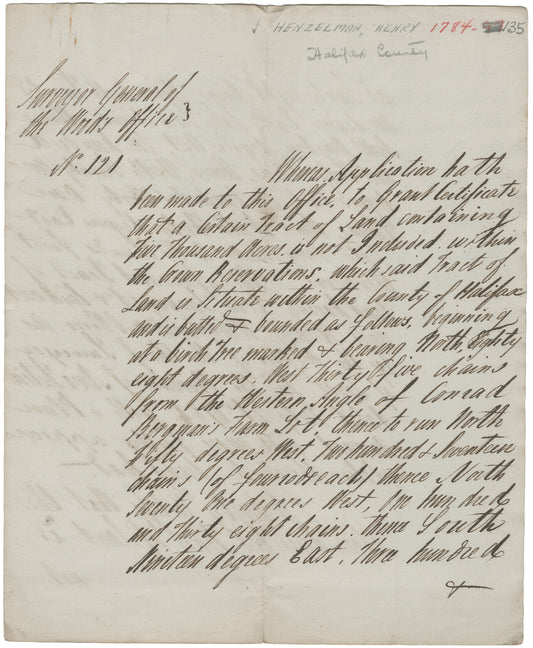 HENZELMAN, HENRY 1784-135
Halifax County
Surveyor General of
the Woods Office
No. 121
Whereas, Application hath
been made to this Office, to Grant Certificate
that a Certain Tract of Land containing
Five Thousand Acres. is not Included. within
the Crown Reservations, which said Tract of
Land is Situate within the County of Halifax
and is butted & bounded as follows, beginning
at a birch Tree marked & bearing North, Eighty
eight degrees, West Thirty Five chains
from the Western Angle of Conrad
Bergman's Farm Lot thence to run North
degrees West, Two hundred & Seventeen
chains (of four rods each) thence North
Seventy One degrees West, One hundred
and Thirty eight chains. thence South
Nineteen degrees East, Three hundred
&